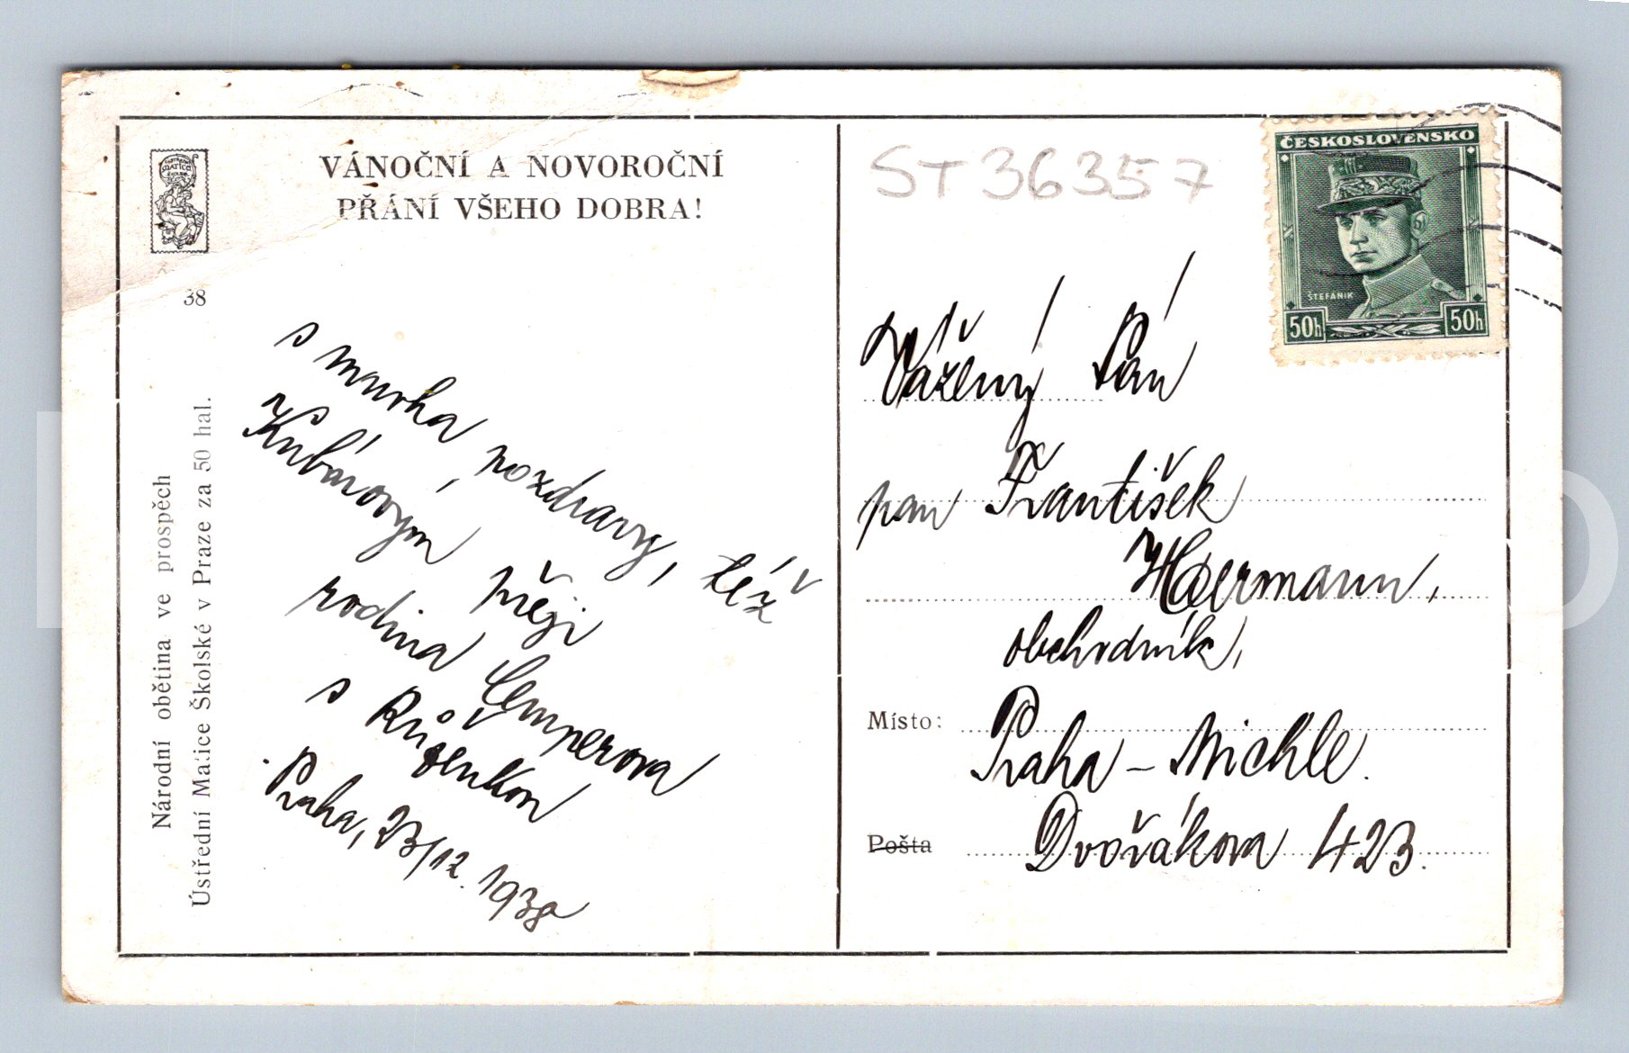 VÁNOČNÍ A NOVOROČNÍ
PŘÁNÍ VŠEHO DOBRA!
38
Národní obětina ve prospěch
Ústřední Matice Školské v Praze za 50 hal.
s mnoha pozdravy, též
Kubárovým přeji
rodina Cemperova
s Růženkou
Praha, 23/12. 1938
ST 36357
ČESKOSLOVENSKO
ŠTEFÁNIK
50h 50h
Vážený Pán
pan František
Heermann,
obchodník,
Místo: Praha – Michle.
Pošta Dvořákova 423.